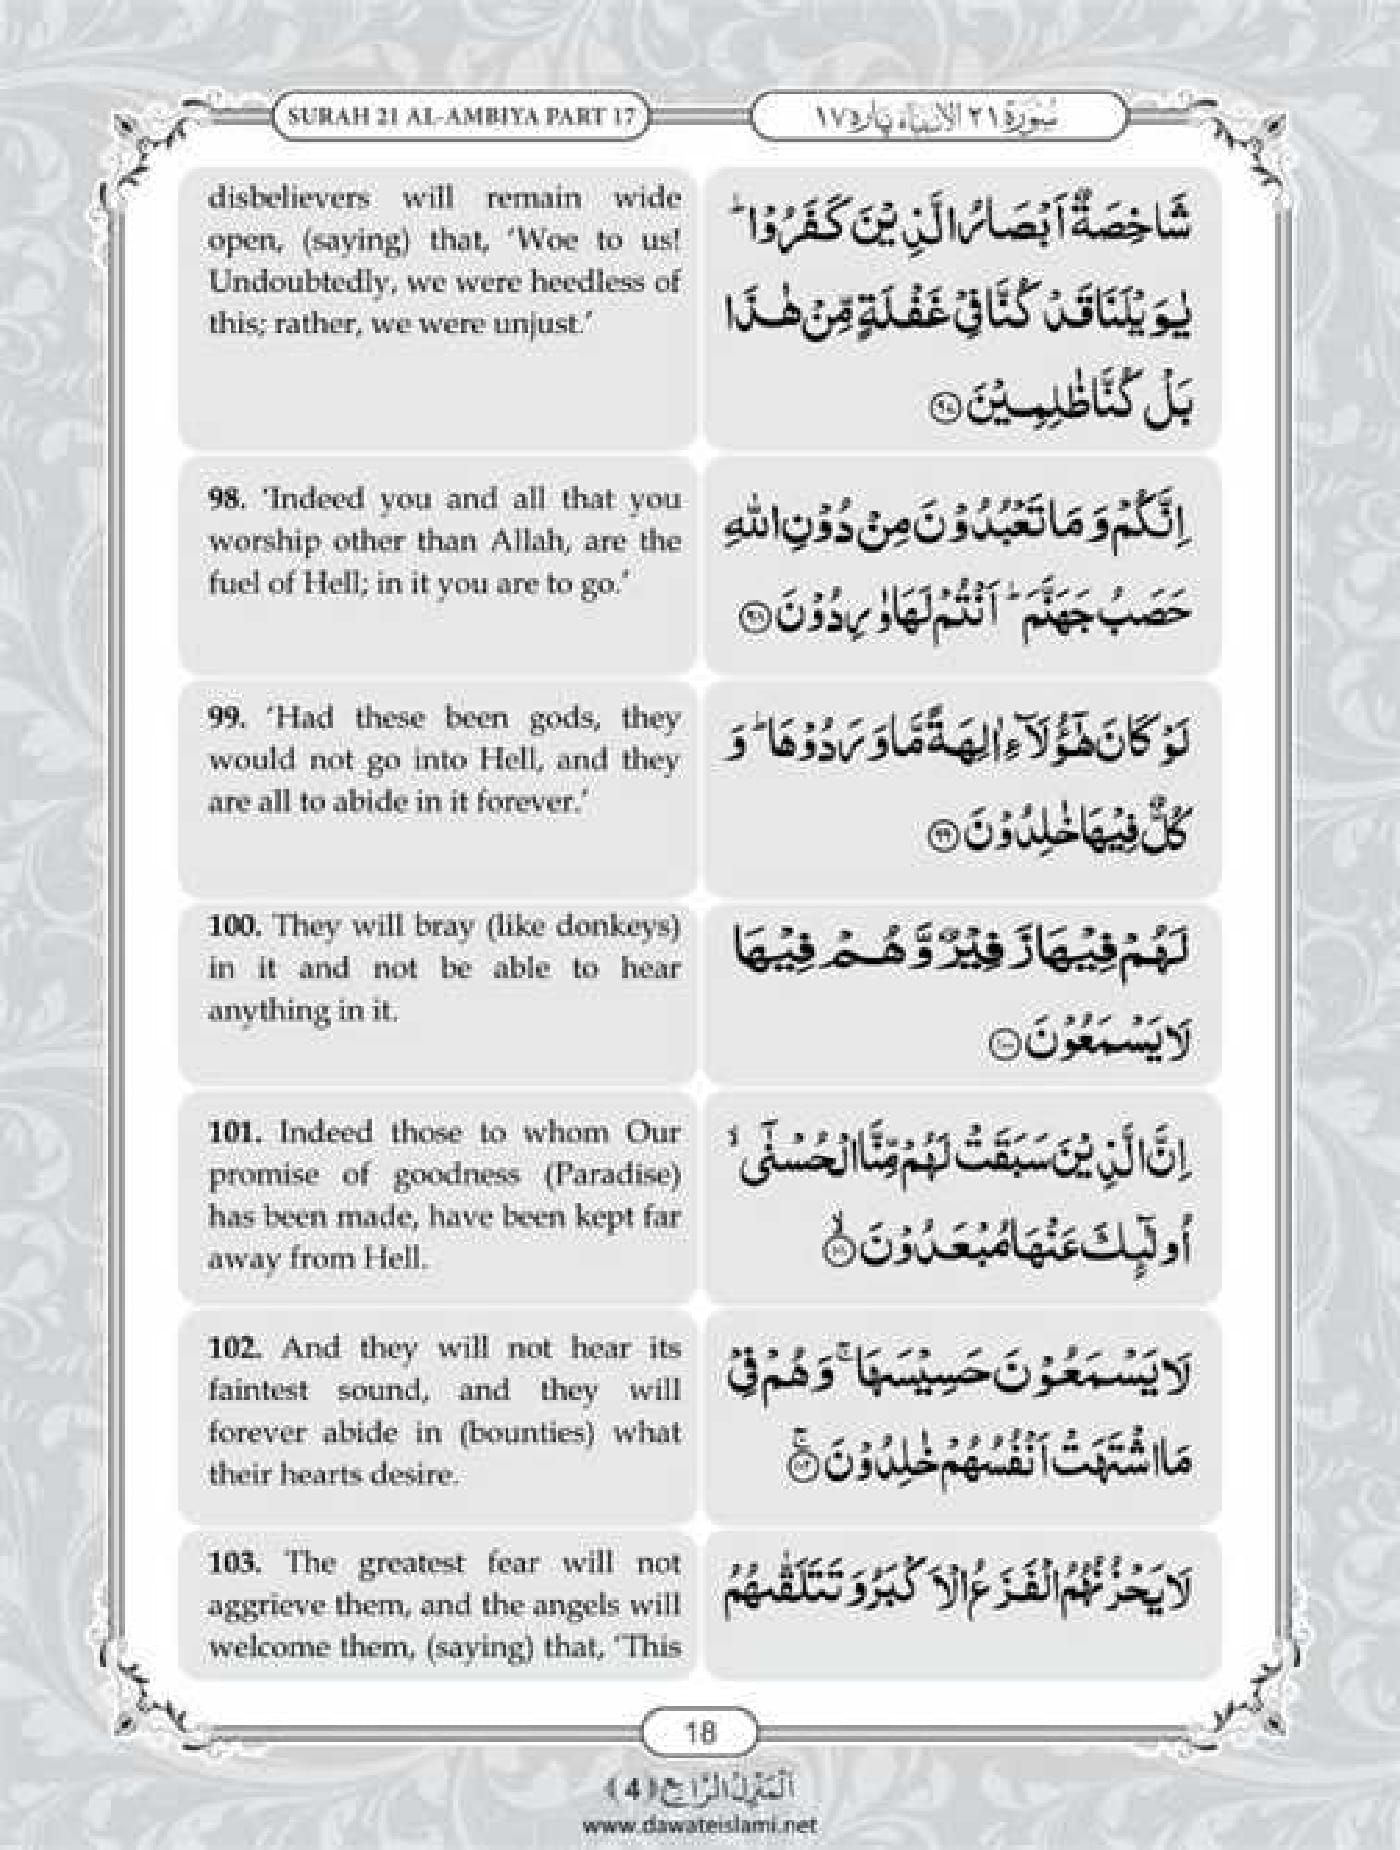 SURAH 21 AL-AMBIYA PART 17
سُوْرَةُ ٢١ الاَنْبِيَاء پَارہ ١٧
disbelievers will remain wide
open, (saying) that, ‘Woe to us!
Undoubtedly, we were heedless of
this; rather, we were unjust.’
شَاخِصَةٌ اَبْصَارُ الَّذِيْنَ كَفَرُوْا ؕ
يٰوَيْلَنَا قَدْ كُنَّا فِيْ غَفْلَةٍ مِّنْ هٰذَا
بَلْ كُنَّا ظٰلِمِيْنَ ﴿۹۷﴾
98. ‘Indeed you and all that you
worship other than Allah, are the
fuel of Hell; in it you are to go.’
اِنَّكُمْ وَ مَا تَعْبُدُوْنَ مِنْ دُوْنِ اللّٰهِ
حَصَبُ جَهَنَّمَ ؕ اَنْتُمْ لَهَا وٰرِدُوْنَ ﴿۹۸﴾
99. ‘Had these been gods, they
would not go into Hell, and they
are all to abide in it forever.’
لَوْ كَانَ هٰۤؤُلَآءِ اٰلِهَةً مَّا وَرَدُوْهَا ؕ وَ
كُلٌّ فِيْهَا خٰلِدُوْنَ ﴿۹۹﴾
100. They will bray (like donkeys)
in it and not be able to hear
anything in it.
لَهُمْ فِيْهَا زَفِيْرٌ وَّ هُمْ فِيْهَا
لَا يَسْمَعُوْنَ ﴿۱۰۰﴾
101. Indeed those to whom Our
promise of goodness (Paradise)
has been made, have been kept far
away from Hell.
اِنَّ الَّذِيْنَ سَبَقَتْ لَهُمْ مِّنَّا الْحُسْنٰۤى ۙ
اُولٰٓئِكَ عَنْهَا مُبْعَدُوْنَ ﴿۱۰۱﴾ۙ
102. And they will not hear its
faintest sound, and they will
forever abide in (bounties) what
their hearts desire.
لَا يَسْمَعُوْنَ حَسِيْسَهَا ۚ وَ هُمْ فِيْ
مَا اشْتَهَتْ اَنْفُسُهُمْ خٰلِدُوْنَ ﴿۱۰۲﴾ۚ
103. The greatest fear will not
aggrieve them, and the angels will
welcome them, (saying) that, ‘This
لَا يَحْزُنُهُمُ الْفَزَعُ الْاَكْبَرُ وَ تَتَلَقّٰىهُمُ
18
اَلْمَنْزِلُ الرَّابِع ﴿4﴾
www.dawateislami.net